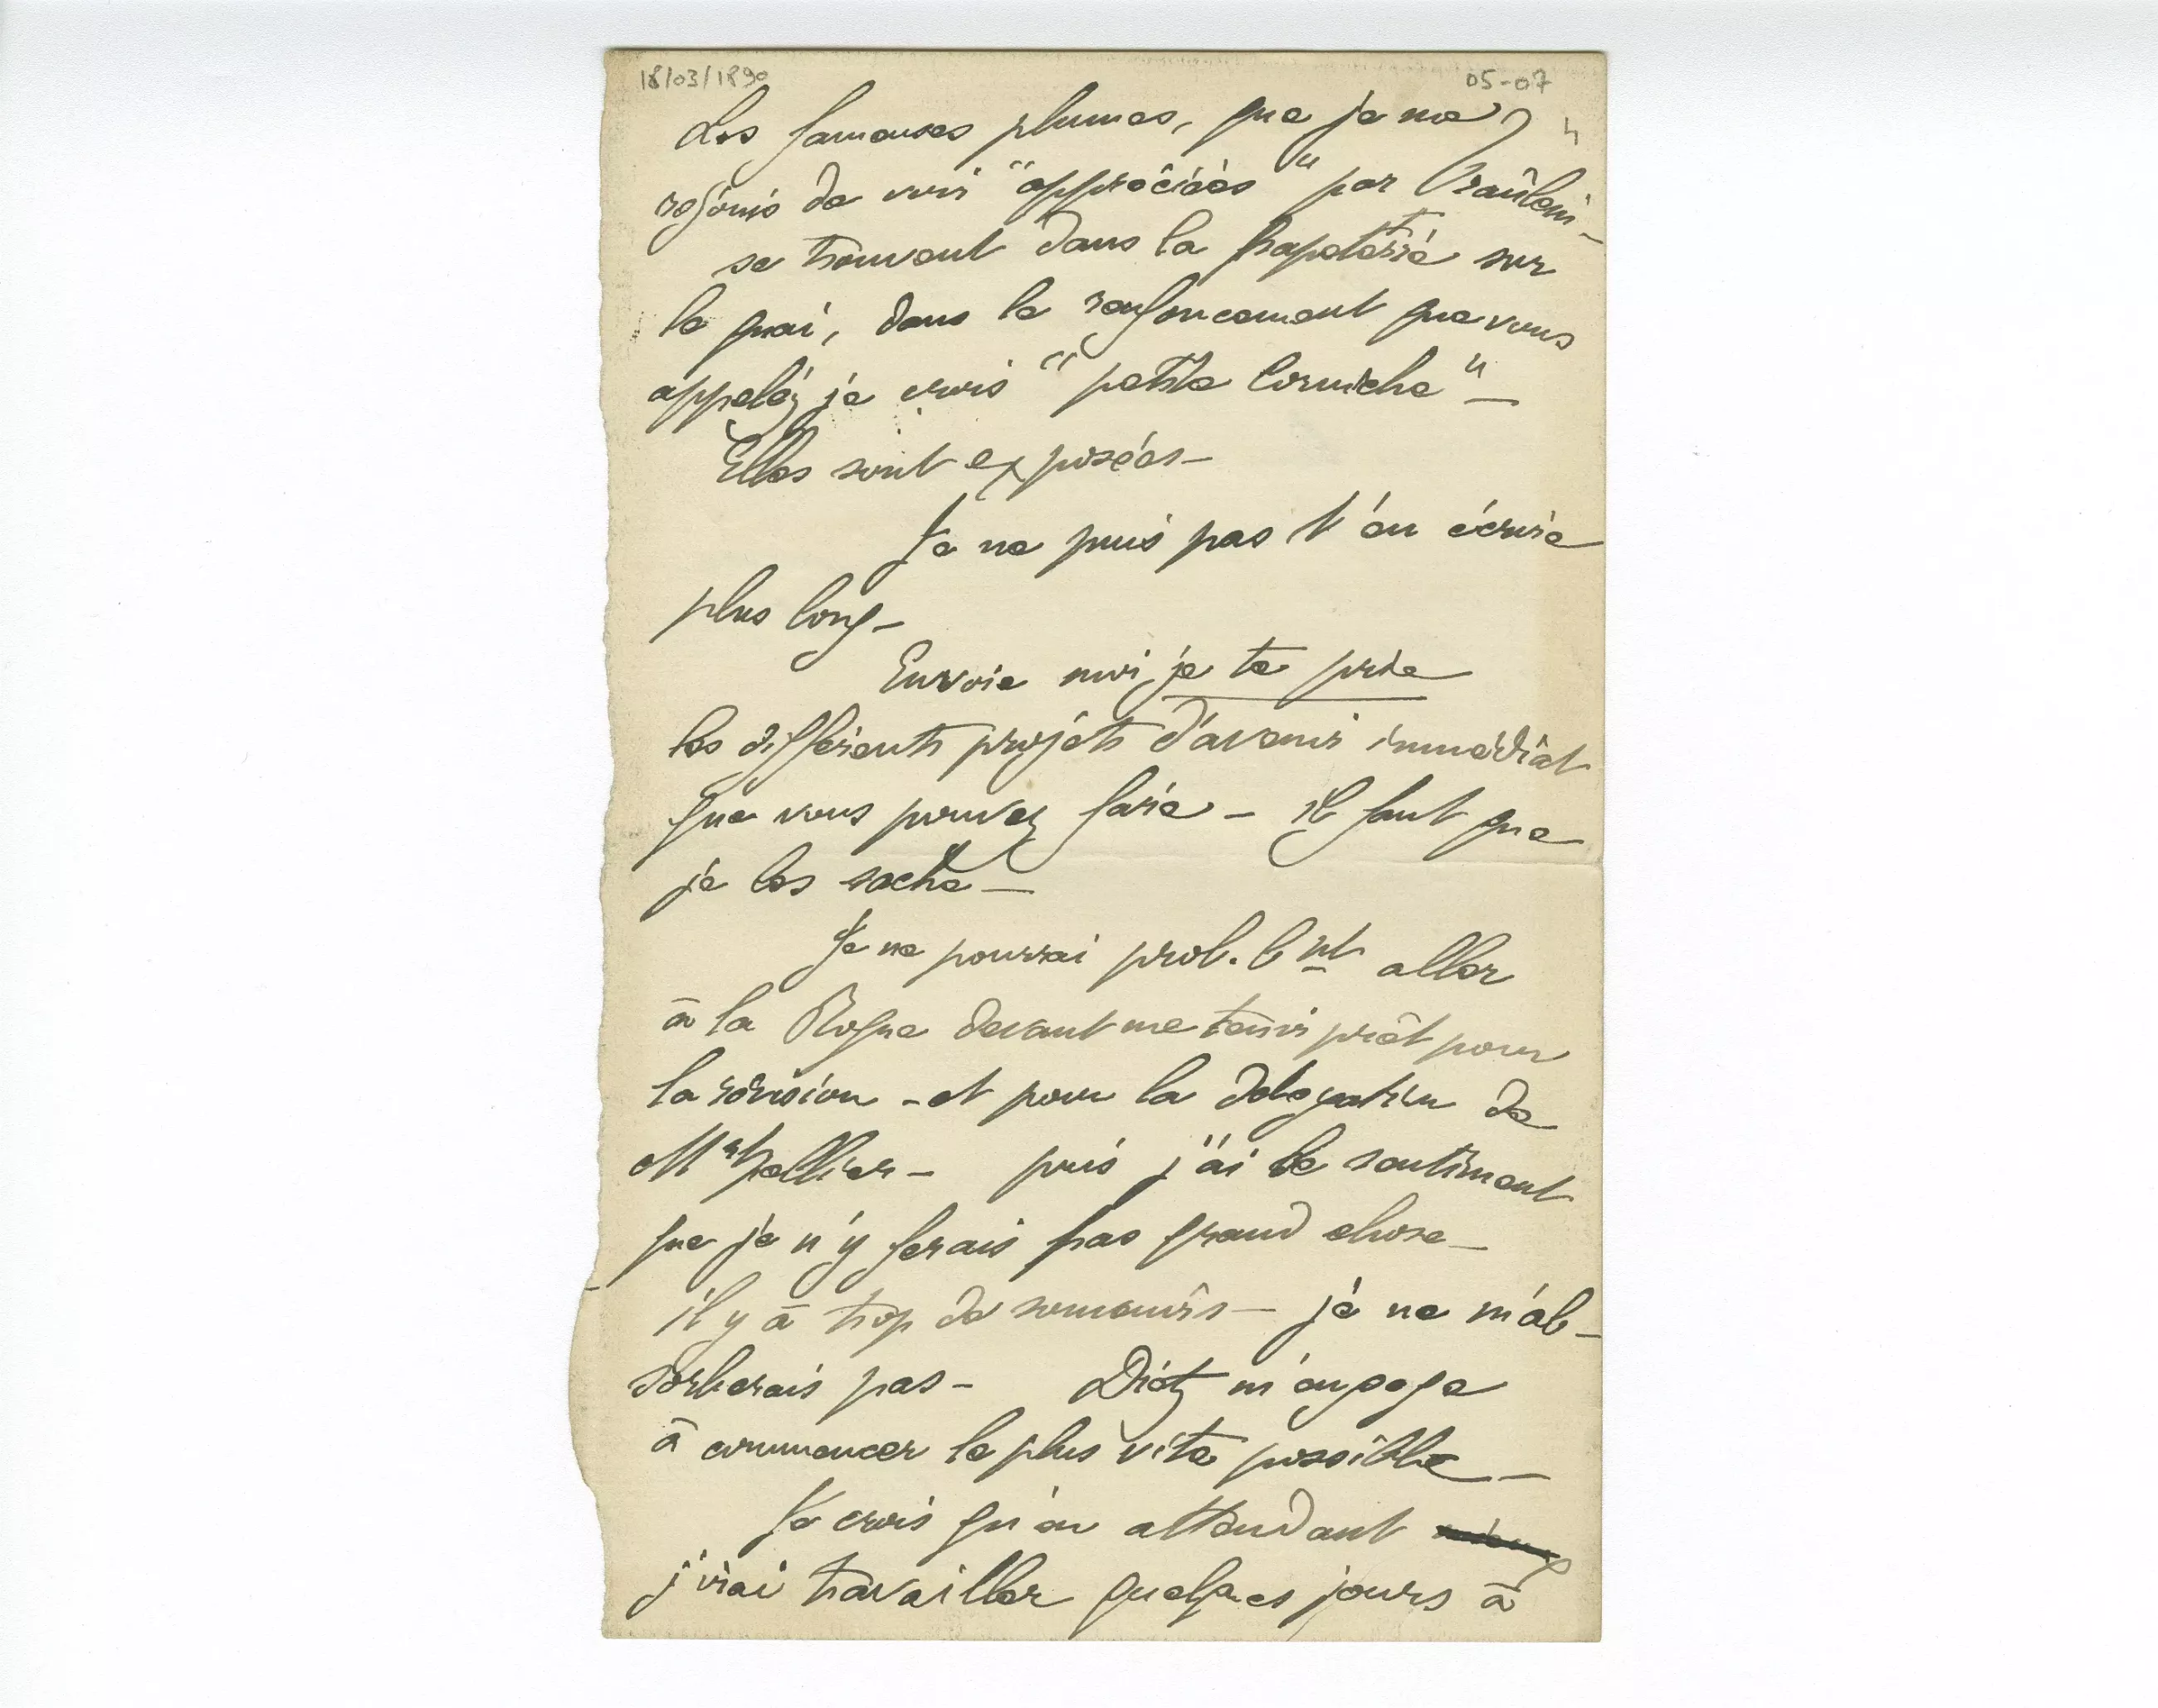 18/03/1890 05-07
Les fameuses plumes, que je me
rejouis de voir "appréciées" par
se trouvent dans la papeterie sur
le quai, dans le renfoncement que vous
appeléz je crois "petite Corniche" —
Elles sont exposées —
Je ne puis pas t'en écrire
plus long —
Envoie moi, je te prie
les différents projets d'avenir immédiat
que vous pouvez faire — il faut que
je les sache —
Je ne pourrai prob. bnt aller
à la devant me tenir prêt pour
la révision — et pour la delegation de
Mntpellier — puis j'ai le sentiment
que je n'y ferais pas grand chose —
il y à trop de souvenirs — je ne m'ab-
sorberais pas — Diétz m'engage
à commencer le plus vite possible —
Je crois qu'en attendant
j'irai travailler quelques jours à